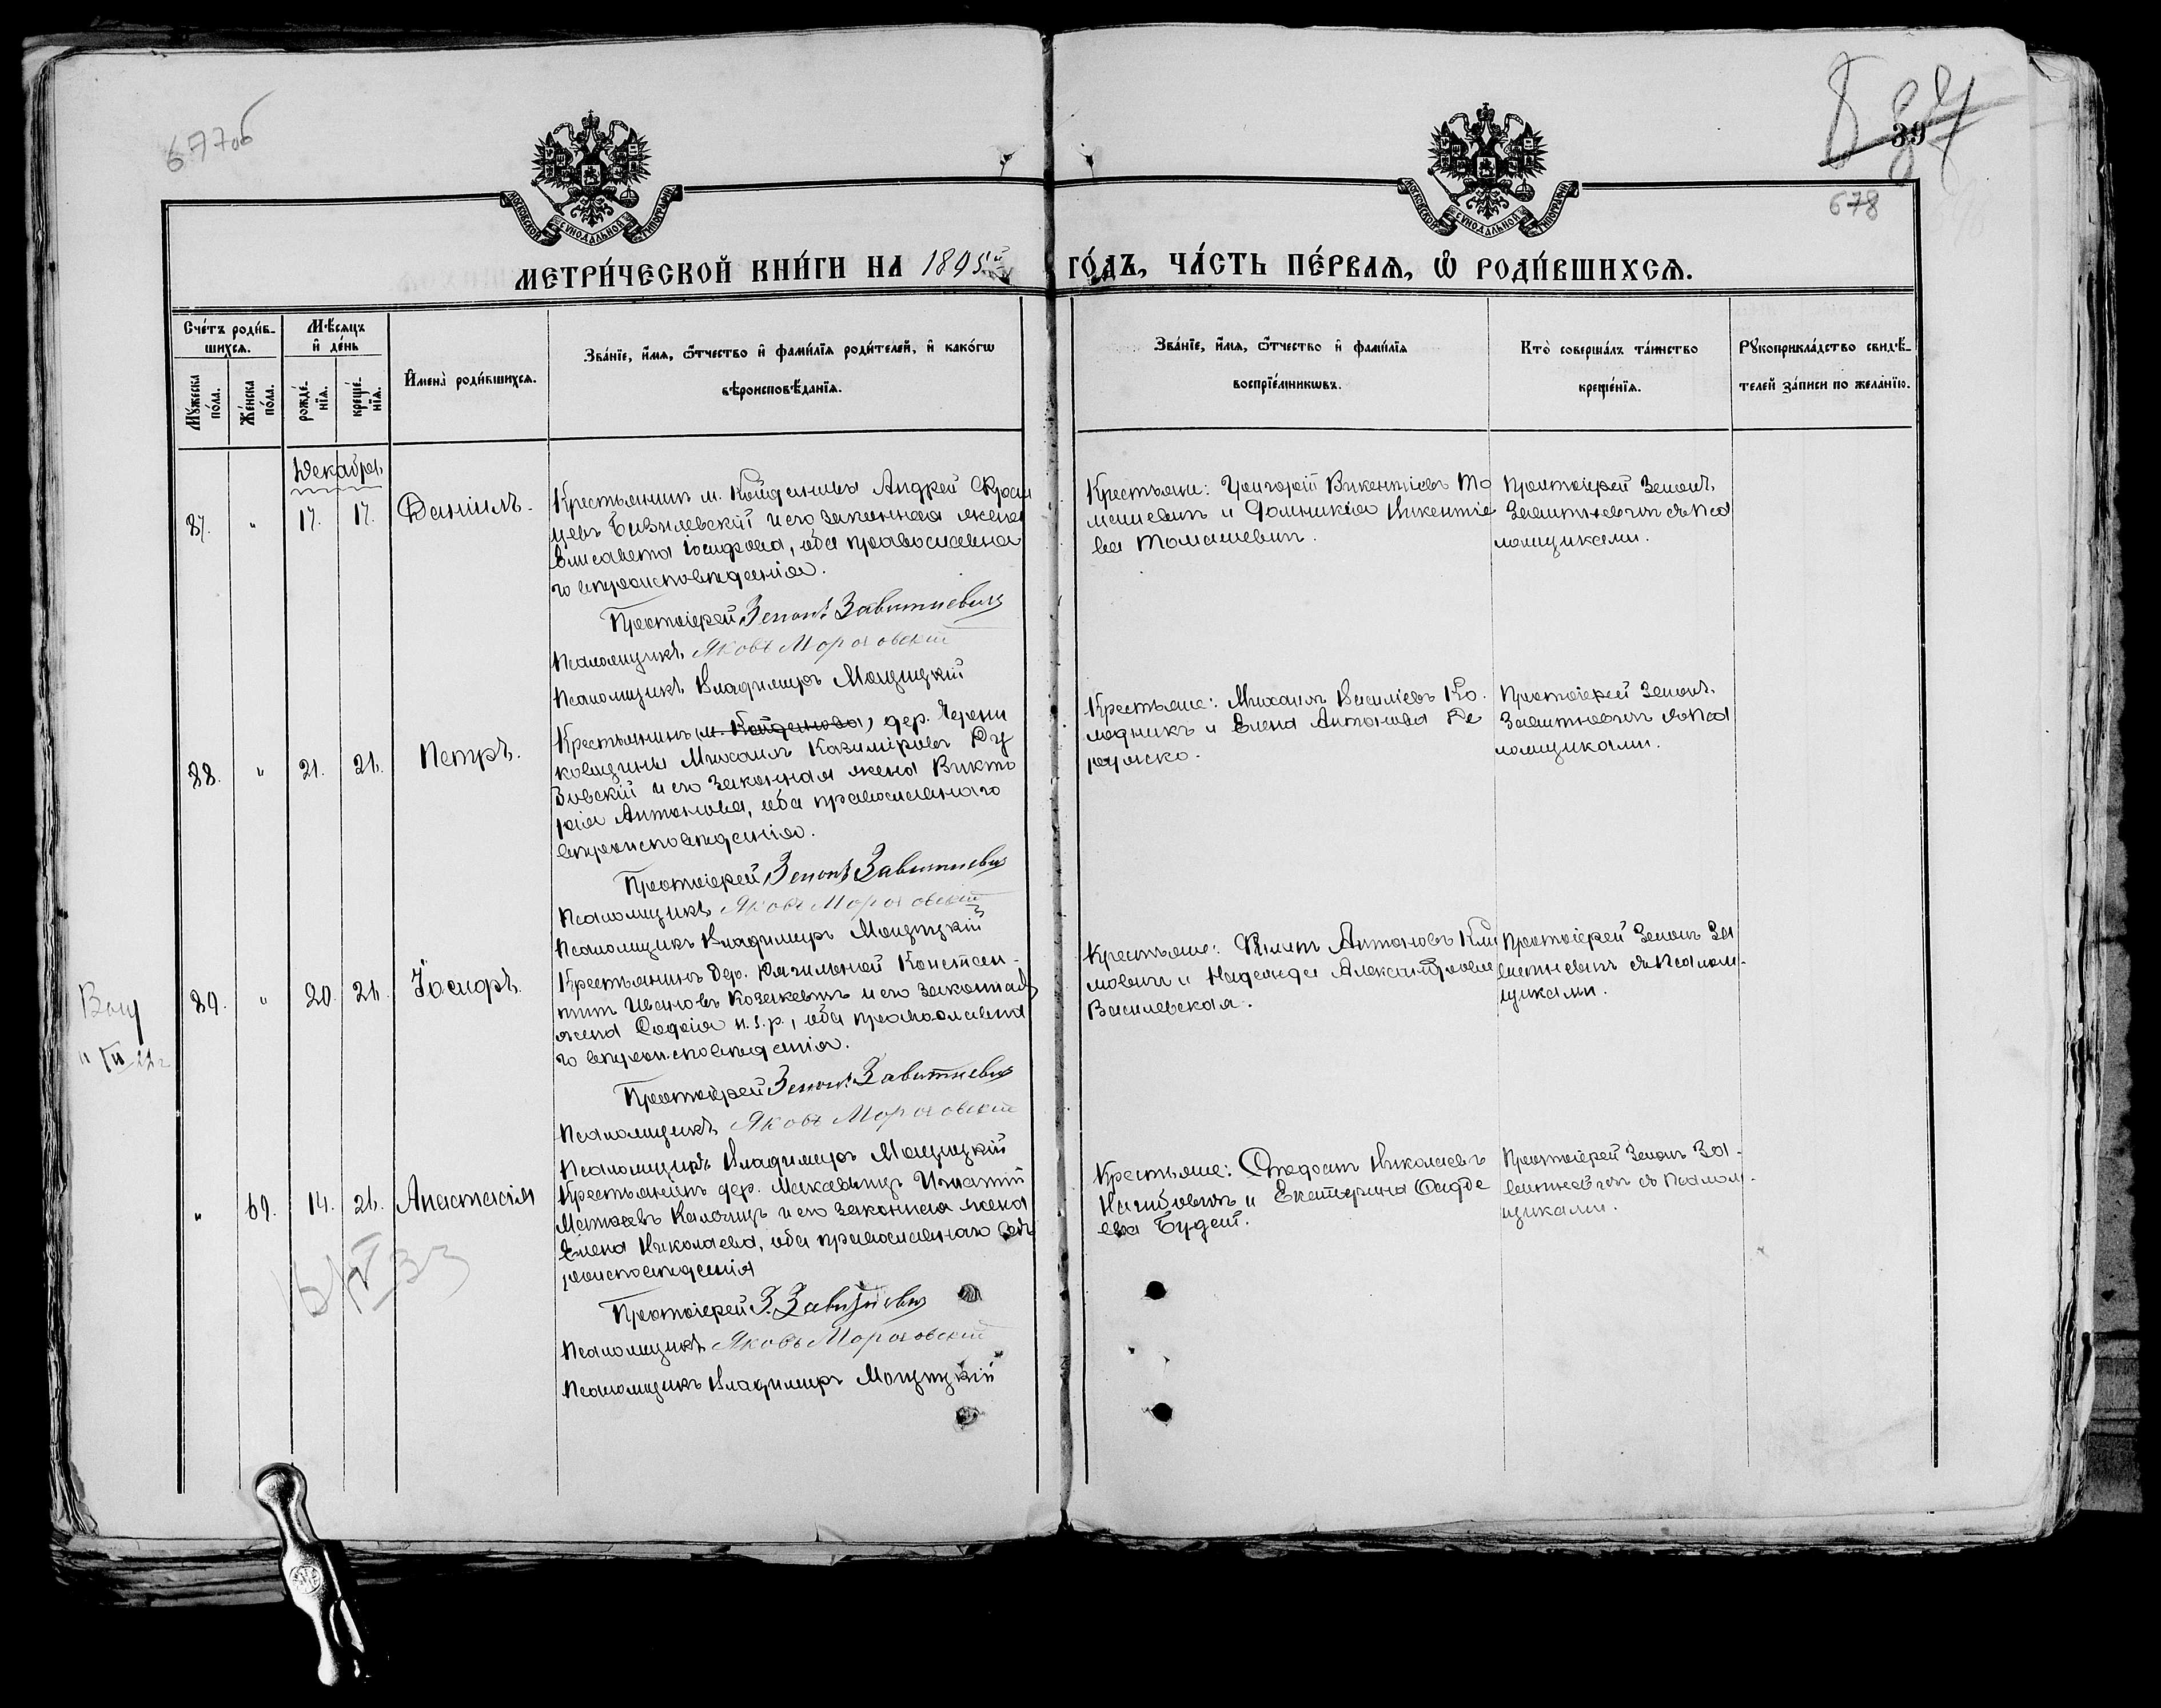 677об
39
678
МОСКОВСКОЙ СѴНОДАЛЬНОЙ ТИПОГРАФІИ
МОСКОВСКОЙ СѴНОДАЛЬНОЙ ТИПОГРАФІИ
МЕТРИ́ЧЕСКОЙ КНИ́ГИ НА 1895й ГО́ДЪ, ЧА́СТЬ ПЕ́РВАЯ, Ѡ РОДИ́ВШИХСЯ.
Сче́тъ роди́в-
шихся.
Мꙋжеска по́ла.
Же́нска по́ла.
Мѣ́сяцъ
и де́нь
рожде́-
нїя.
креще́-
нїя.
Имена̀ роди́вшихся.
Зва́нїе, и́мя, ѻ́тчество и фами́лїя роди́телей, и како́гѡ
вѣроисповѣ́данїя.
Зва́нїе, и́мя, ѻ́тчество и фами́лїя
воспрїе́мникѡвъ.
Кто̀ соверша́лъ та́инство
креще́нїя.
Рꙋкоприкла́дство свидѣ́-
телей за́писи по жела́нїю.
Декабрь
87. " 17. 17. Даніилъ.
Крестьянинъ м. Койданова Андрей
и его законная жена
Елисавета Іосифова, оба православна
го вѣроисповѣданія.
Протоіерей Зенонъ Завитневичъ
Псаломщикъ Яковъ Морозовскій
Псаломщикъ Владимиръ Мощицкій
Крестьяне: Григорій Викентіевъ То
машевичъ и Домникія Викентіе
ва Томашевичъ.
Протоіерей Зенонъ
Завитневичъ съ пса
ломщиками.
88. " 21. 21. Петръ.
Крестьянинъ м. Койданова, дер.
Михаилъ Казиміровъ Ру
ковскій и его законная жена Викто
рія Антонова, оба православнаго
вѣроисповѣданія.
Протоіерей Зенонъ Завитневичъ
Псаломщикъ Яковъ Морозовскій
Псаломщикъ Владимиръ Мощицкій
Крестьяне: Михаилъ Василіевъ Ко
лодникъ и Елена Антонова
Протоіерей Зенонъ
Завитневичъ съ пса
ломщиками.
89. " 20. 21. Іосифъ.
Крестьянинъ дер. Константинъ
Ивановъ Козакевичъ и его законная
жена Софія п. з. р., оба православна
го вѣроисповѣданія.
Протоіерей Зенонъ Завитневичъ
Псаломщикъ Яковъ Морозовскій
Псаломщикъ Владимиръ Мощицкій
Крестьяне: Филипъ Антоновъ Кли
мовичъ и Надежда Александрова
Василевская.
Протоіерей Зенонъ За
витневичъ съ псалом-
щиками.
" 69. 14. 21. Анастасія
Крестьянинъ дер. Макавчицъ Игнатій
Матѳеевъ и его законная жена
Елена Николаева, оба православнаго вѣ
роисповѣданія
Протоіерей З. Завитневичъ
Псаломщикъ Яковъ Морозовскій
Псаломщикъ Владимиръ Мощицкій
Крестьяне: Николаевъ
и Екатерина Фадде
ева
Протоіерей Зенонъ За-
витневичъ съ псалом-
щиками.